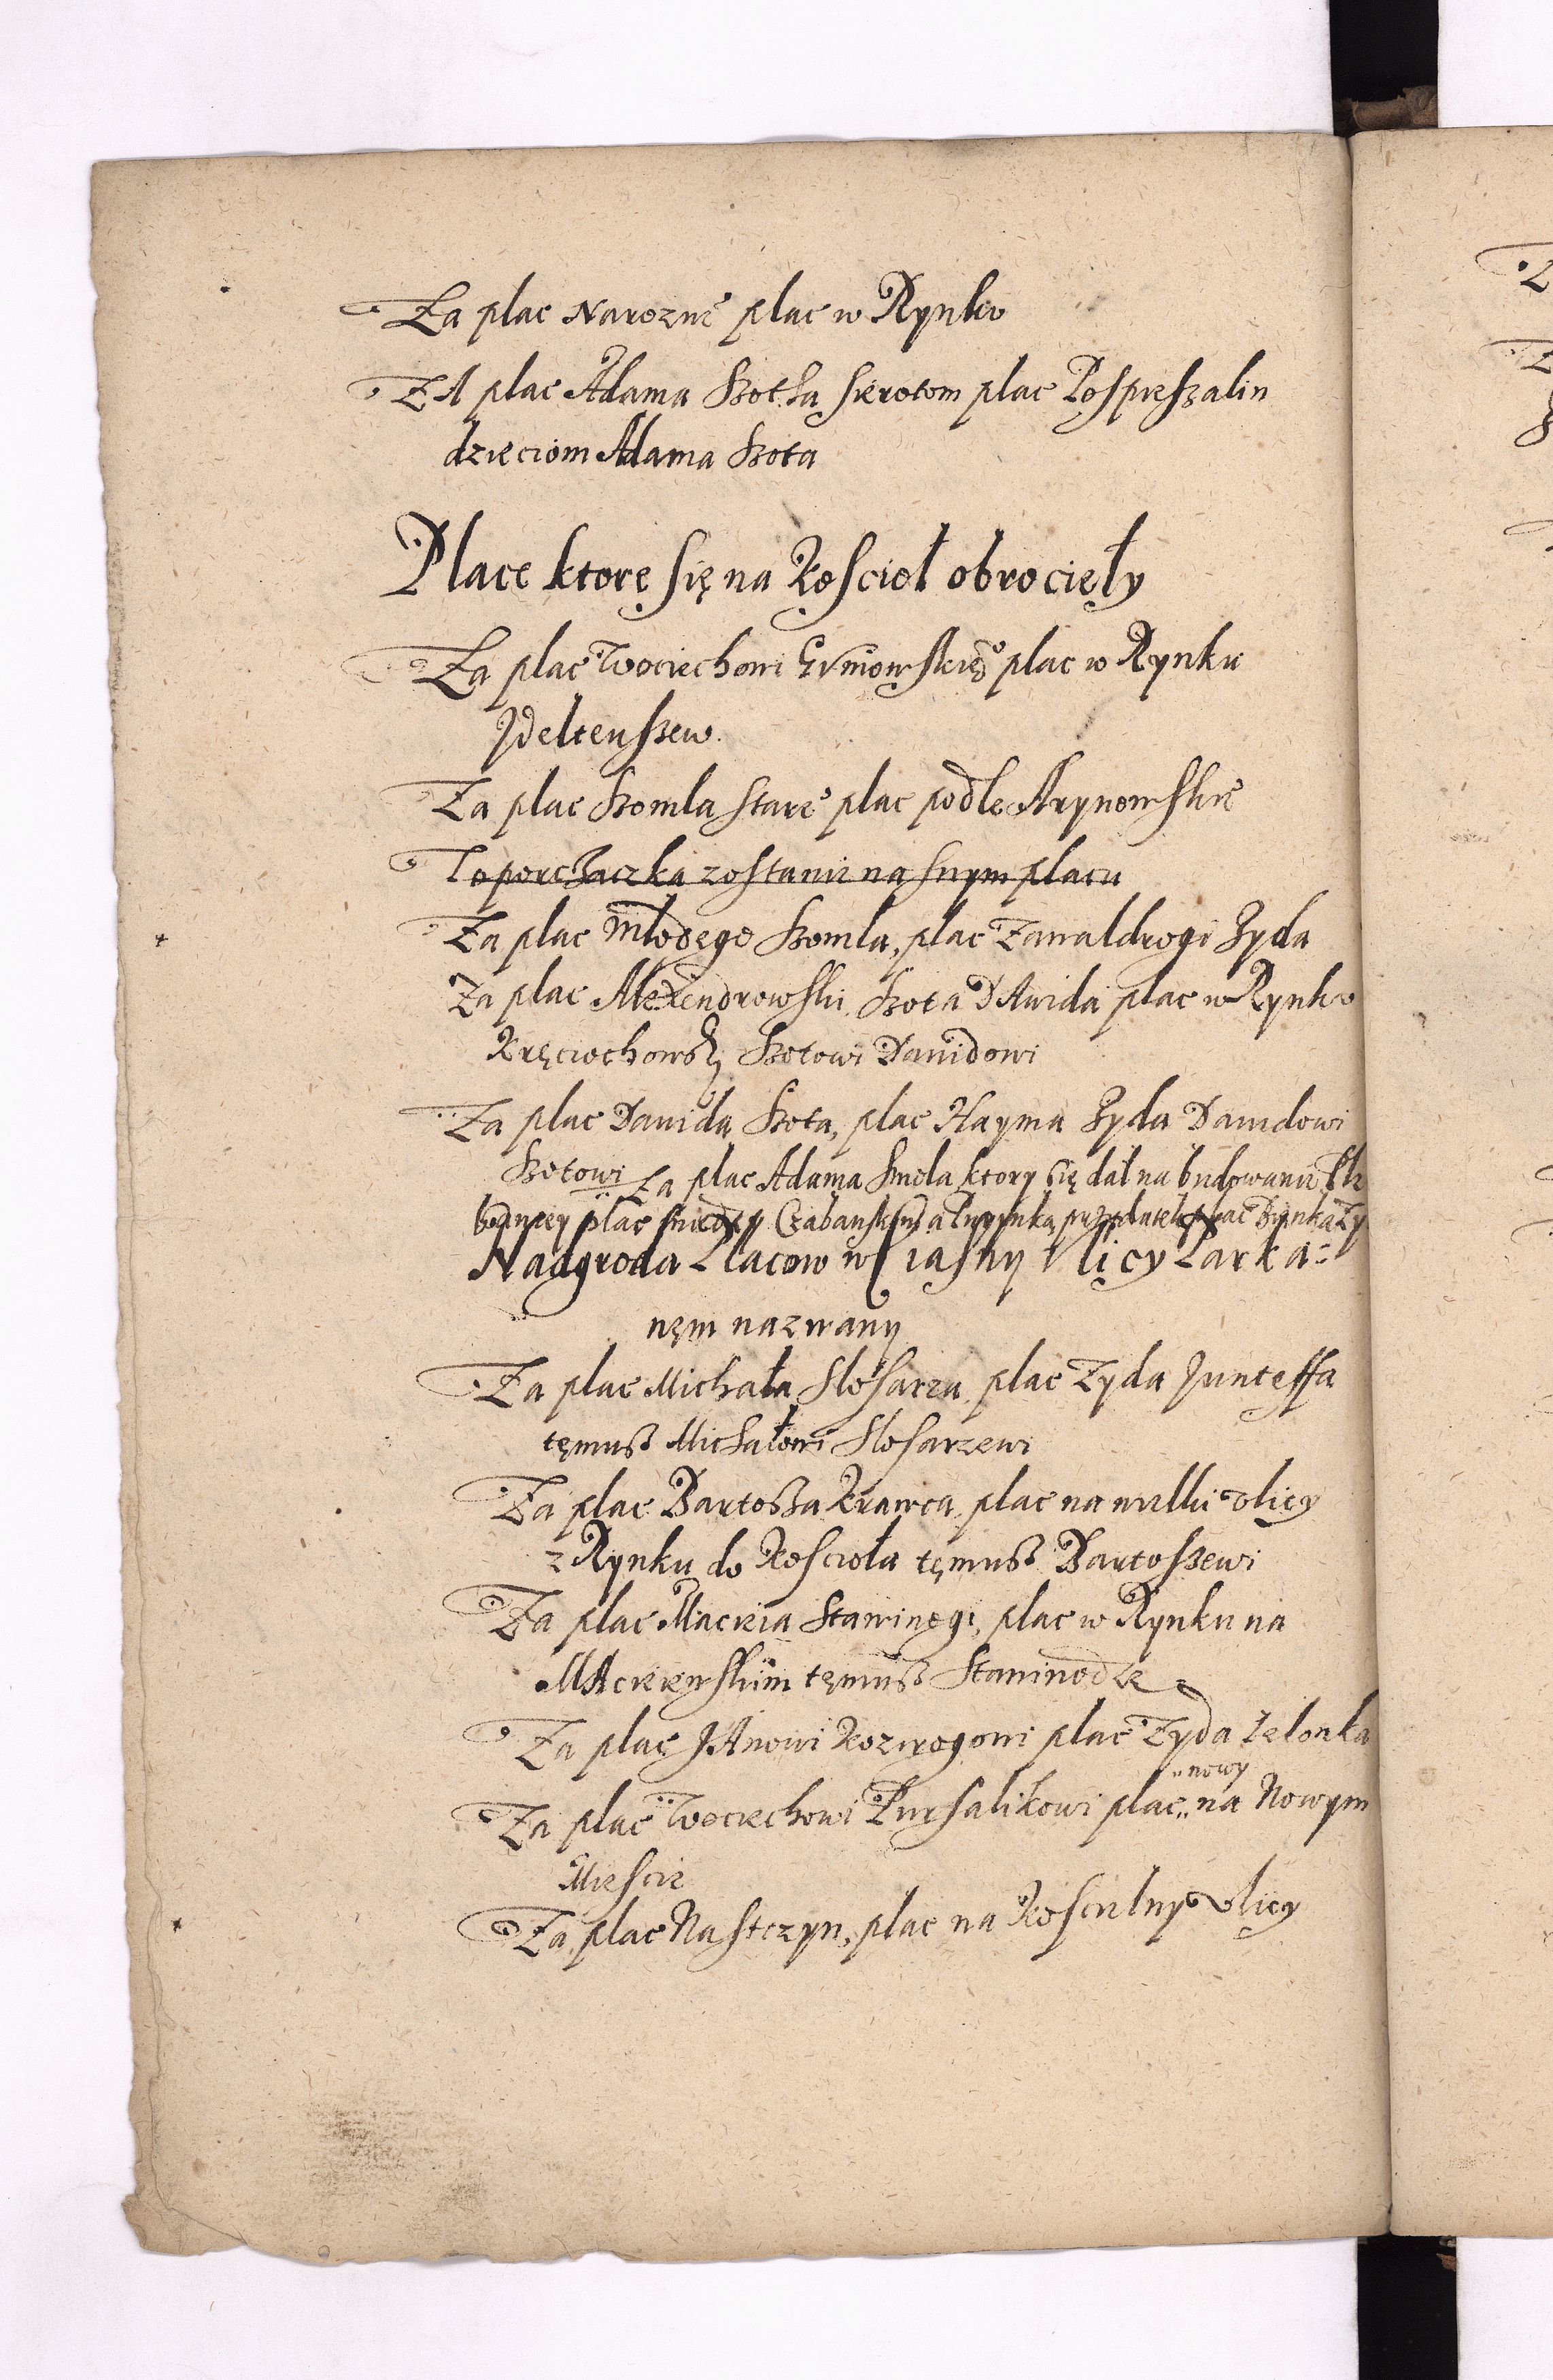 Za plac Narozne plac w Rynku
ZA plac Adama Szotha sierotom plac Pospieszalin
dzieciom Adama Szota
Place ktorę się na Kościoł obrocięły
Za plac Woiciechowi plac w Rynku
Za plac Szomla stare plac podle Arynowskie
Toporczaczka zostanie na swym placu
Za plac Młodęgo Szomla, plac Zawaldrogi Zyda
Za plac Alexendrowski Szota DAwida plac w Rynku
Szotowi Dawidowi
Za plac Dawida Szota, plac Hayma Zyda Dawidowi
Szotowi Za plac Adama Smola ktory się dał na budowanie
plac plac
Nadgroda Placow w ciasny Vlicy Parka=
nęm nazwany
Za plac Michała Slosarza plac Zyda Junteffa
tęmusz Michałowi Slosarzewi
Za plac Bartosza Krawca plac na wielki vlicy
z Rynku do Kościoła tęmusz Bartoszewi
Za plac Macieia Stawinogi, plac w Rynku na
MAcieiewskiim tęmusz Stawinodze
Za plac JAnowi Kozirogowi plac Zyda Zelonka
nowy
Za plac Woiciechowi Pursalikowi plac na Nowym
Mieście
Za plac Nastczyn, plac na Kościelny vlicy